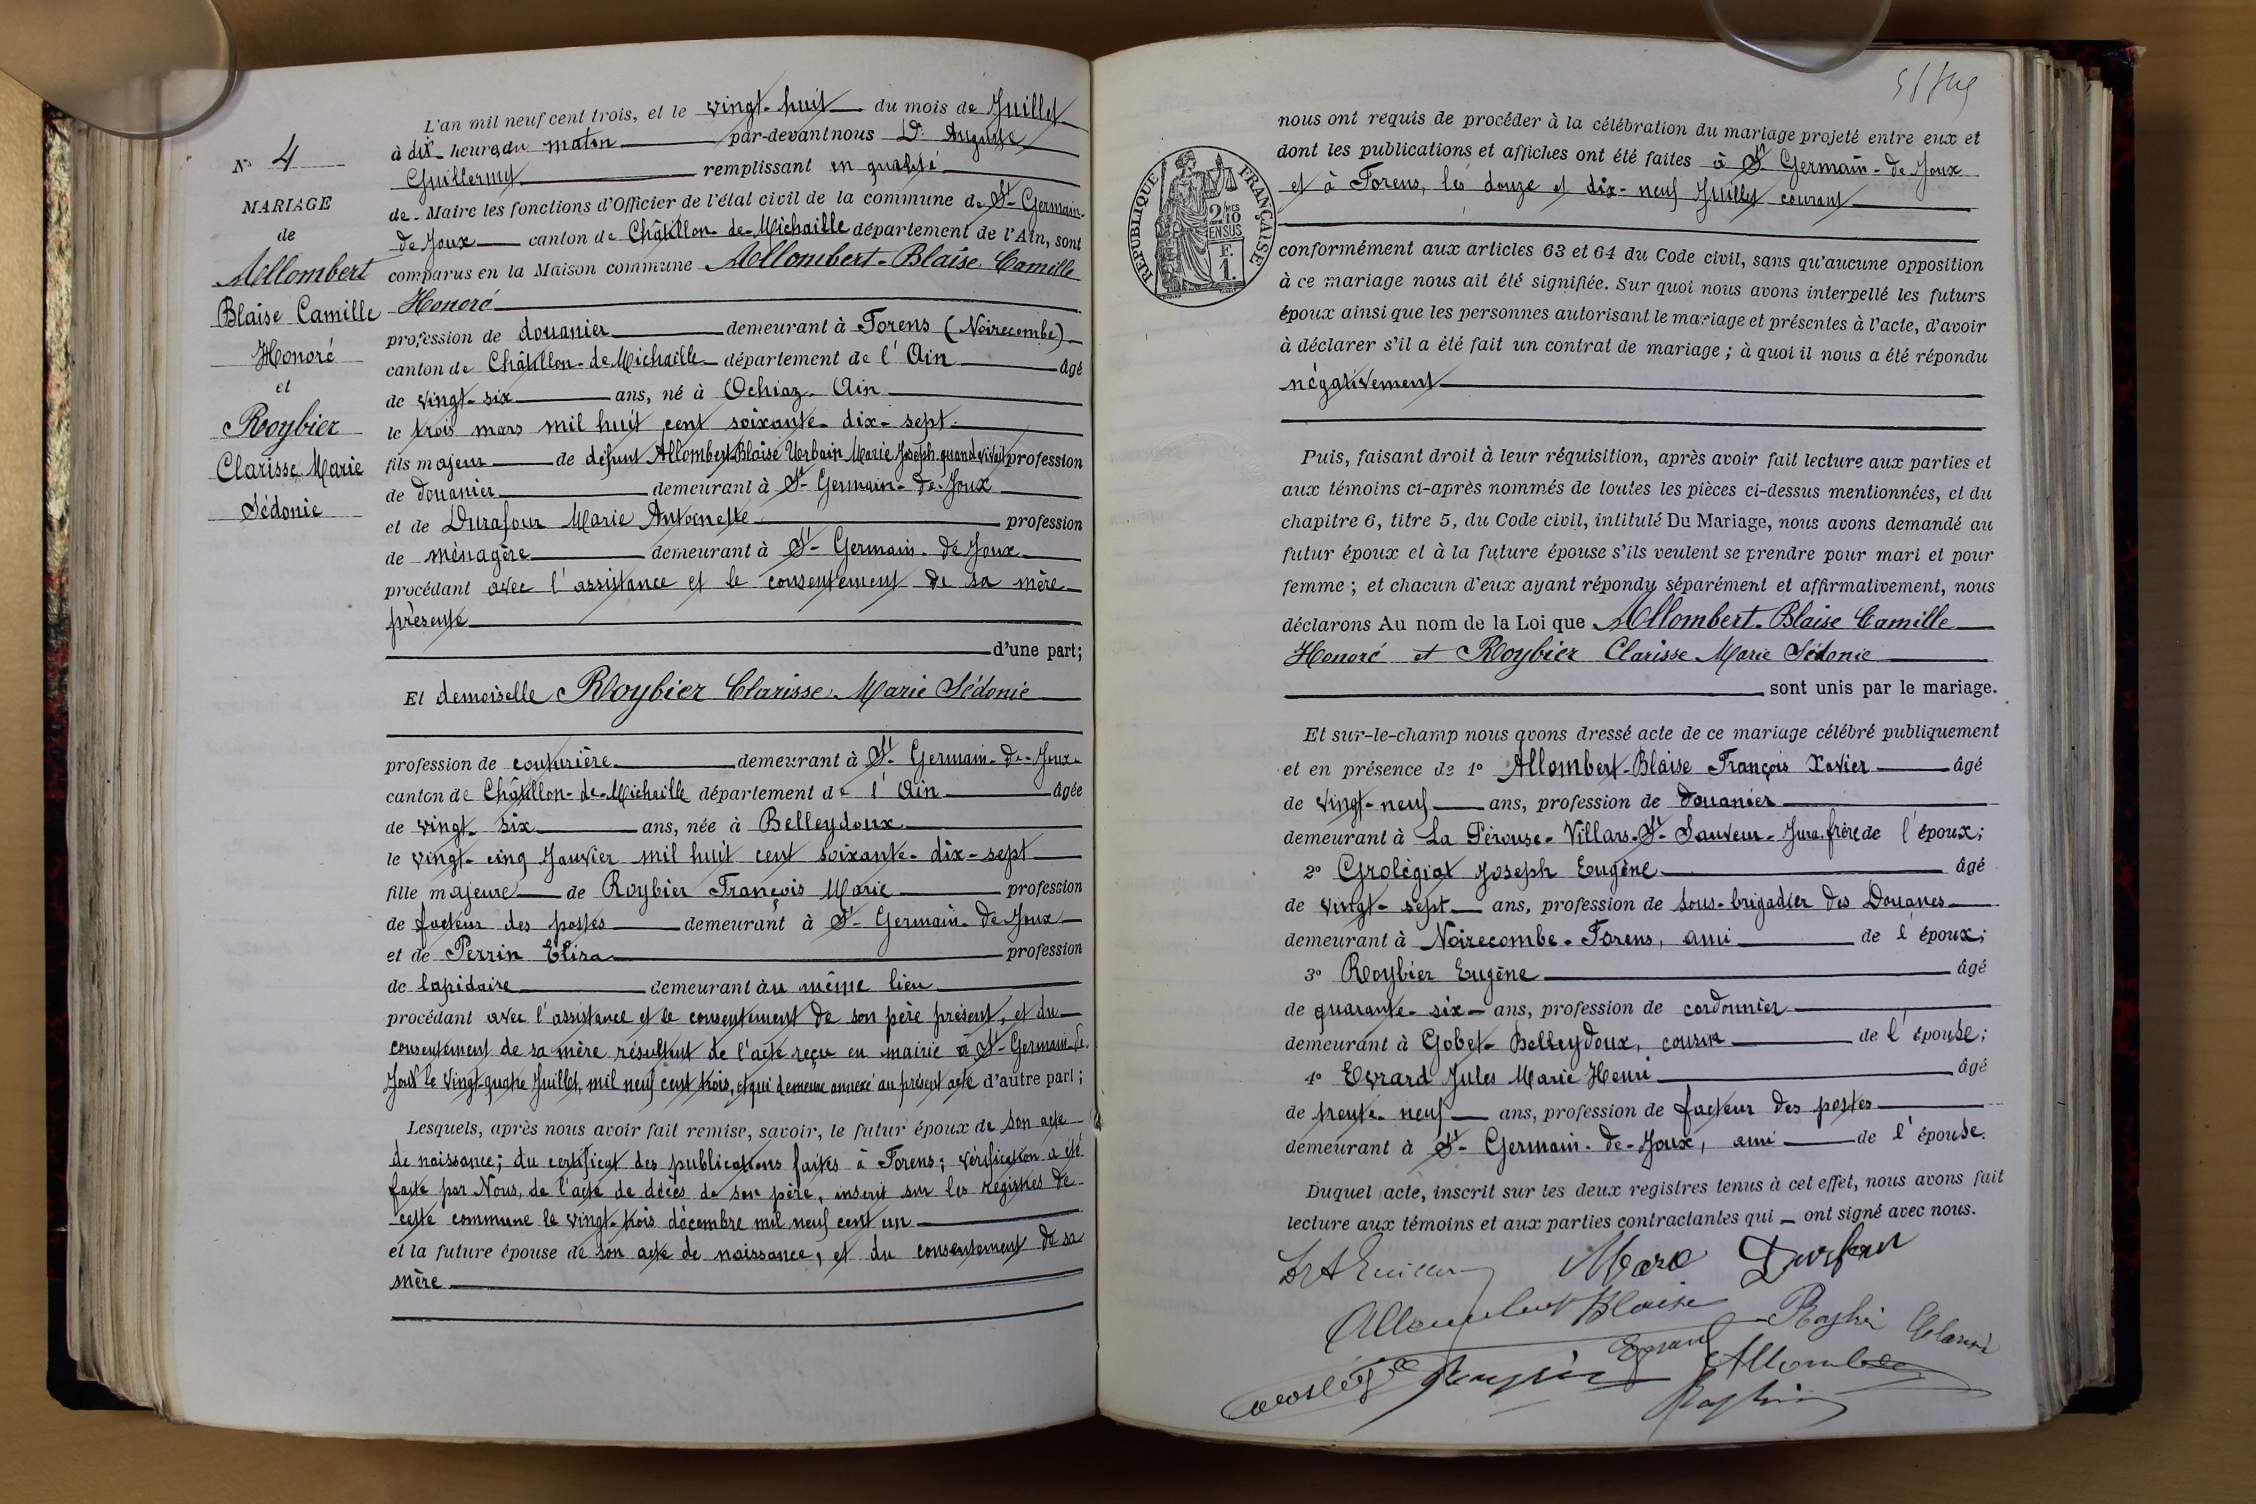 N° 4
MARIAGE
de
Allombert
Blaise Camille
Honoré
et
Roybier
Clarisse Marie
Sédonie
L'an mil neuf cent trois, et le vingt-huit du mois de Juillet
à dix heures du matin par-devant nous Dr Auguste
Guillermy remplissant en qualité
de Maire les fonctions d'Officier de l'état civil de la commune de St Germain-
de Joux canton de Châtillon-de-Michaille département de l'Ain, sont
comparus en la Maison commune Allombert-Blaise Camille
Honoré
profession de douanier demeurant à Forens (Noirecombe)
canton de Châtillon-de-Michaille département de l'Ain âgé
de vingt-six ans, né à Ochiaz Ain
le trois mars mil huit cent soixante-dix-sept
fils majeur de défunt Allombert-Blaise Urbain Marie Joseph quand vivait profession
de douanier demeurant à St Germain-de-Joux
et de Durafour Marie Antoinette profession
de ménagère demeurant à St Germain-de Joux
procédant avec l'assistance et le consentement de sa mère
présente
d'une part;
Et demoiselle Roybier Clarisse Marie Sédonie
profession de couturière demeurant à St Germain-de-Joux
canton de Châtillon-de-Michaille département de l'Ain âgée
de vingt-six ans, née à Belleydoux
le vingt-cinq Janvier mil huit cent soixante-dix-sept
fille majeure de Roybier François Marie profession
de facteur des postes demeurant à St Germain-de Joux
et de Perrin Elisa profession
de lapidaire demeurant au même lieu
procédant avec l'assistance et le consentement de son père présent, et du
consentement de sa mère résultant de l'acte reçu en mairie à St Germain-de
Joux le vingt-quatre Juillet, mil neuf cent trois, et qui demeure annexé au présent acte d'autre part;
Lesquels, après nous avoir fait remise, savoir, le futur époux de son acte
de naissance; du certificat des publications faites à Forens; vérification a été
faite par Nous, de l'acte de décès de son père, inscrit sur les registres de
cette commune le vingt-trois décembre mil neuf cent un
et la future épouse de son acte de naissance, et du consentement de sa
mère
RÉPUBLIQUE FRANÇAISE
2/10
EN SUS
F.
1.
nous ont requis de procéder à la célébration du mariage projeté entre eux et
dont les publications et affiches ont été faites à St Germain-de Joux
et à Forens, les douze et dix-neuf Juillet courant
conformément aux articles 63 et 64 du Code civil, sans qu'aucune opposition
à ce mariage nous ait été signifiée. Sur quoi nous avons interpellé les futurs
époux ainsi que les personnes autorisant le mariage et présentes à l'acte, d'avoir
à déclarer s'il a été fait un contrat de mariage; à quoi il nous a été répondu
négativement
Puis, faisant droit à leur réquisition, après avoir fait lecture aux parties et
aux témoins ci-après nommés de toutes les pièces ci-dessus mentionnées, et du
chapitre 6, titre 5, du Code civil, intitulé Du Mariage, nous avons demandé au
futur époux et à la future épouse s'ils veulent se prendre pour mari et pour
femme; et chacun d'eux ayant répondu séparément et affirmativement, nous
déclarons Au nom de la Loi que Allombert-Blaise Camille
Honoré et Roybier Clarisse Marie Sédonie
sont unis par le mariage.
Et sur-le-champ nous avons dressé acte de ce mariage célébré publiquement
et en présence de 1° Allombert-Blaise François Xavier âgé
de vingt-neuf ans, profession de douanier
demeurant à La Pérouse-Villars-St Sauveur-Jura, frère de l'époux;
2° Grolégiat Joseph Eugène âgé
de vingt-sept ans, profession de sous-brigadier des Douanes
demeurant à Noirecombe-Forens, ami de l'époux;
3° Roybier Eugène âgé
de quarante-six ans, profession de cordonnier
demeurant à Gobet-Belleydoux, cousin de l'épouse;
4° Evrard Jules Marie Henri âgé
de trente-neuf ans, profession de facteur des postes
demeurant à St Germain-de-Joux, ami de l'épouse.
Duquel acte, inscrit sur les deux registres tenus à cet effet, nous avons fait
lecture aux témoins et aux parties contractantes qui ont signé avec nous.
Marc Durafour
Allombert Blaise
Roybier Clarisse
Evrard Allombert
Roybier